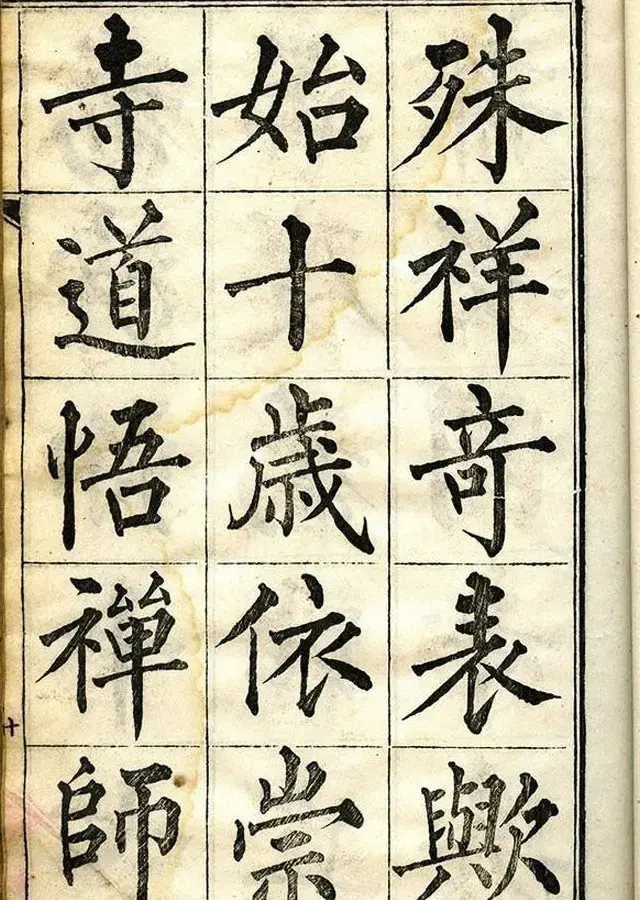 殊祥竒表歟
始十歳依崇
寺道悟禪師